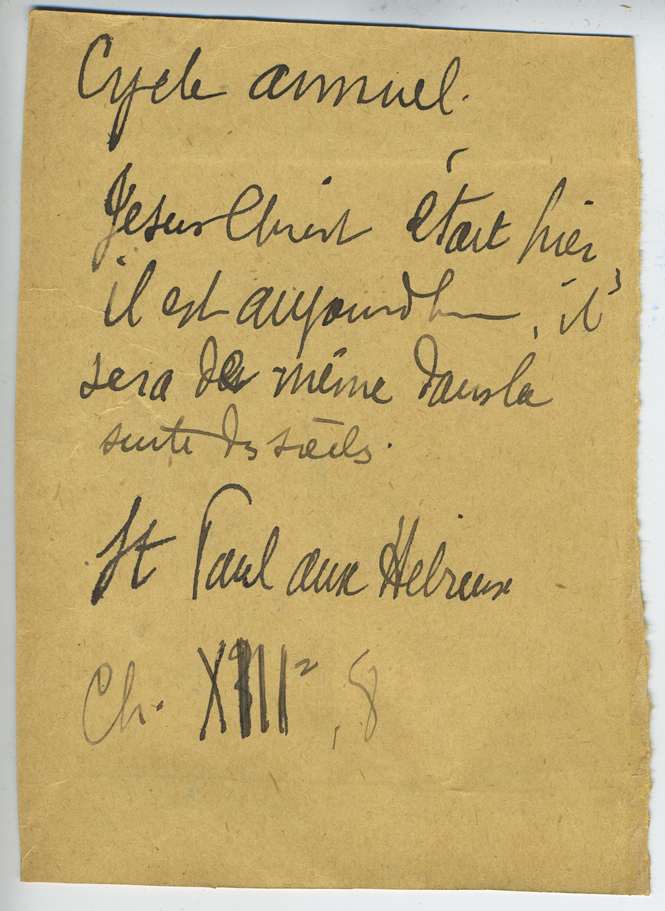 Cycle annuel.
Jesus Christ était hier
il est aujourd'hui, il
sera de même dans la
suite des siècles.
St Paul aux Hebreux
Ch. XIII, 8